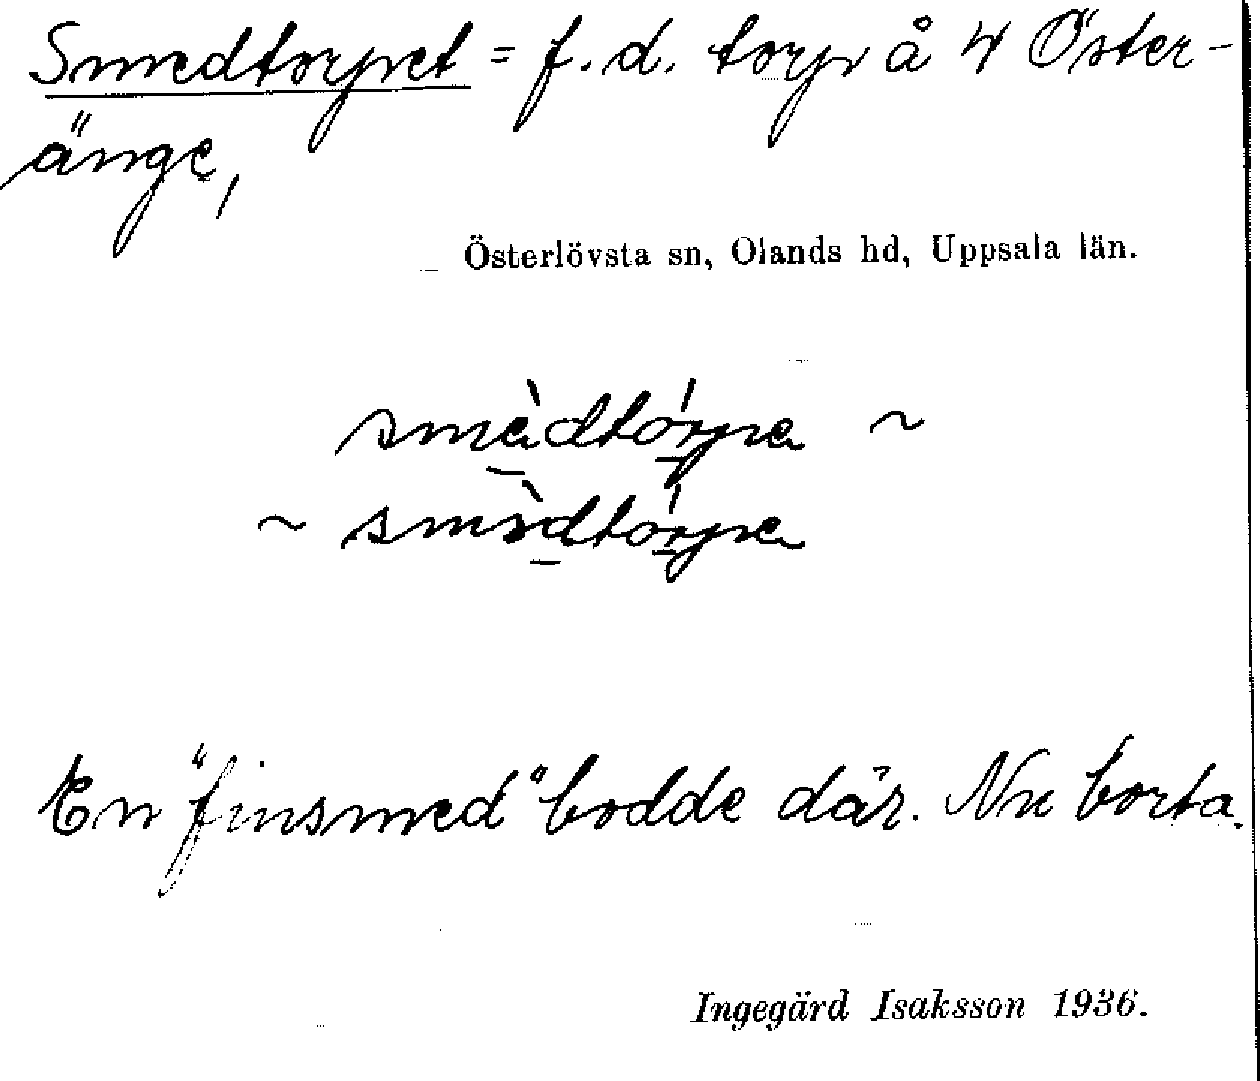 Smedtorpet = f.d. torp å 4 Öster-
änge,
Österlövsta sn, Olands hd, Uppsala län.
smèdtórpa ~
~ smìdtórpa
En "finsmed" bodde där. Nu borta.
Ingegärd Isaksson 1936.